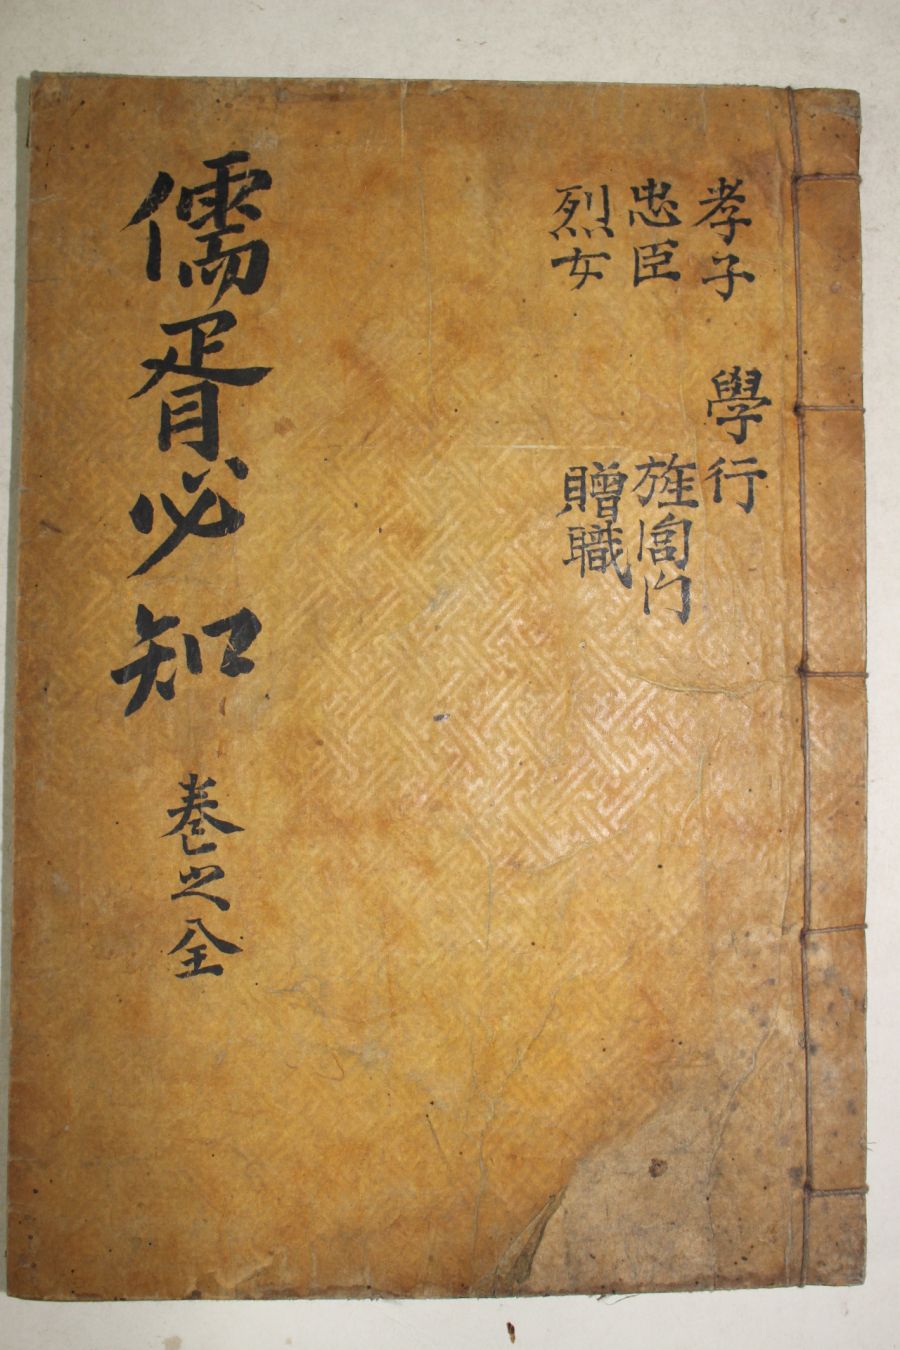 孝子 學行
忠臣 旌門
烈女 贈職
儒胥必知 卷之全